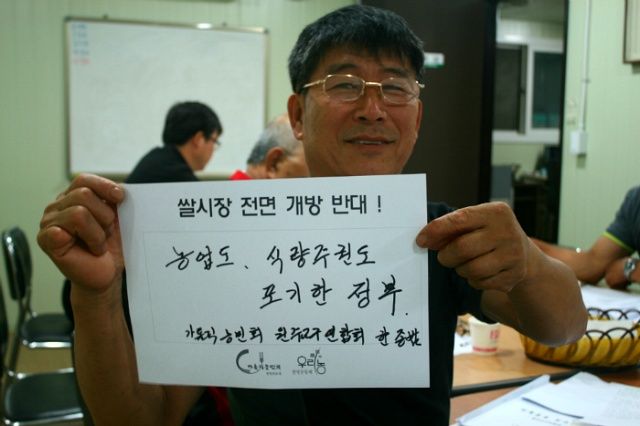 쌀시장 전면 개방 반대 !
농업도, 식량주권도
포기한 정부.
가톨릭농민회 원주교구연합회 한 종범
가톨릭농민회
우리농